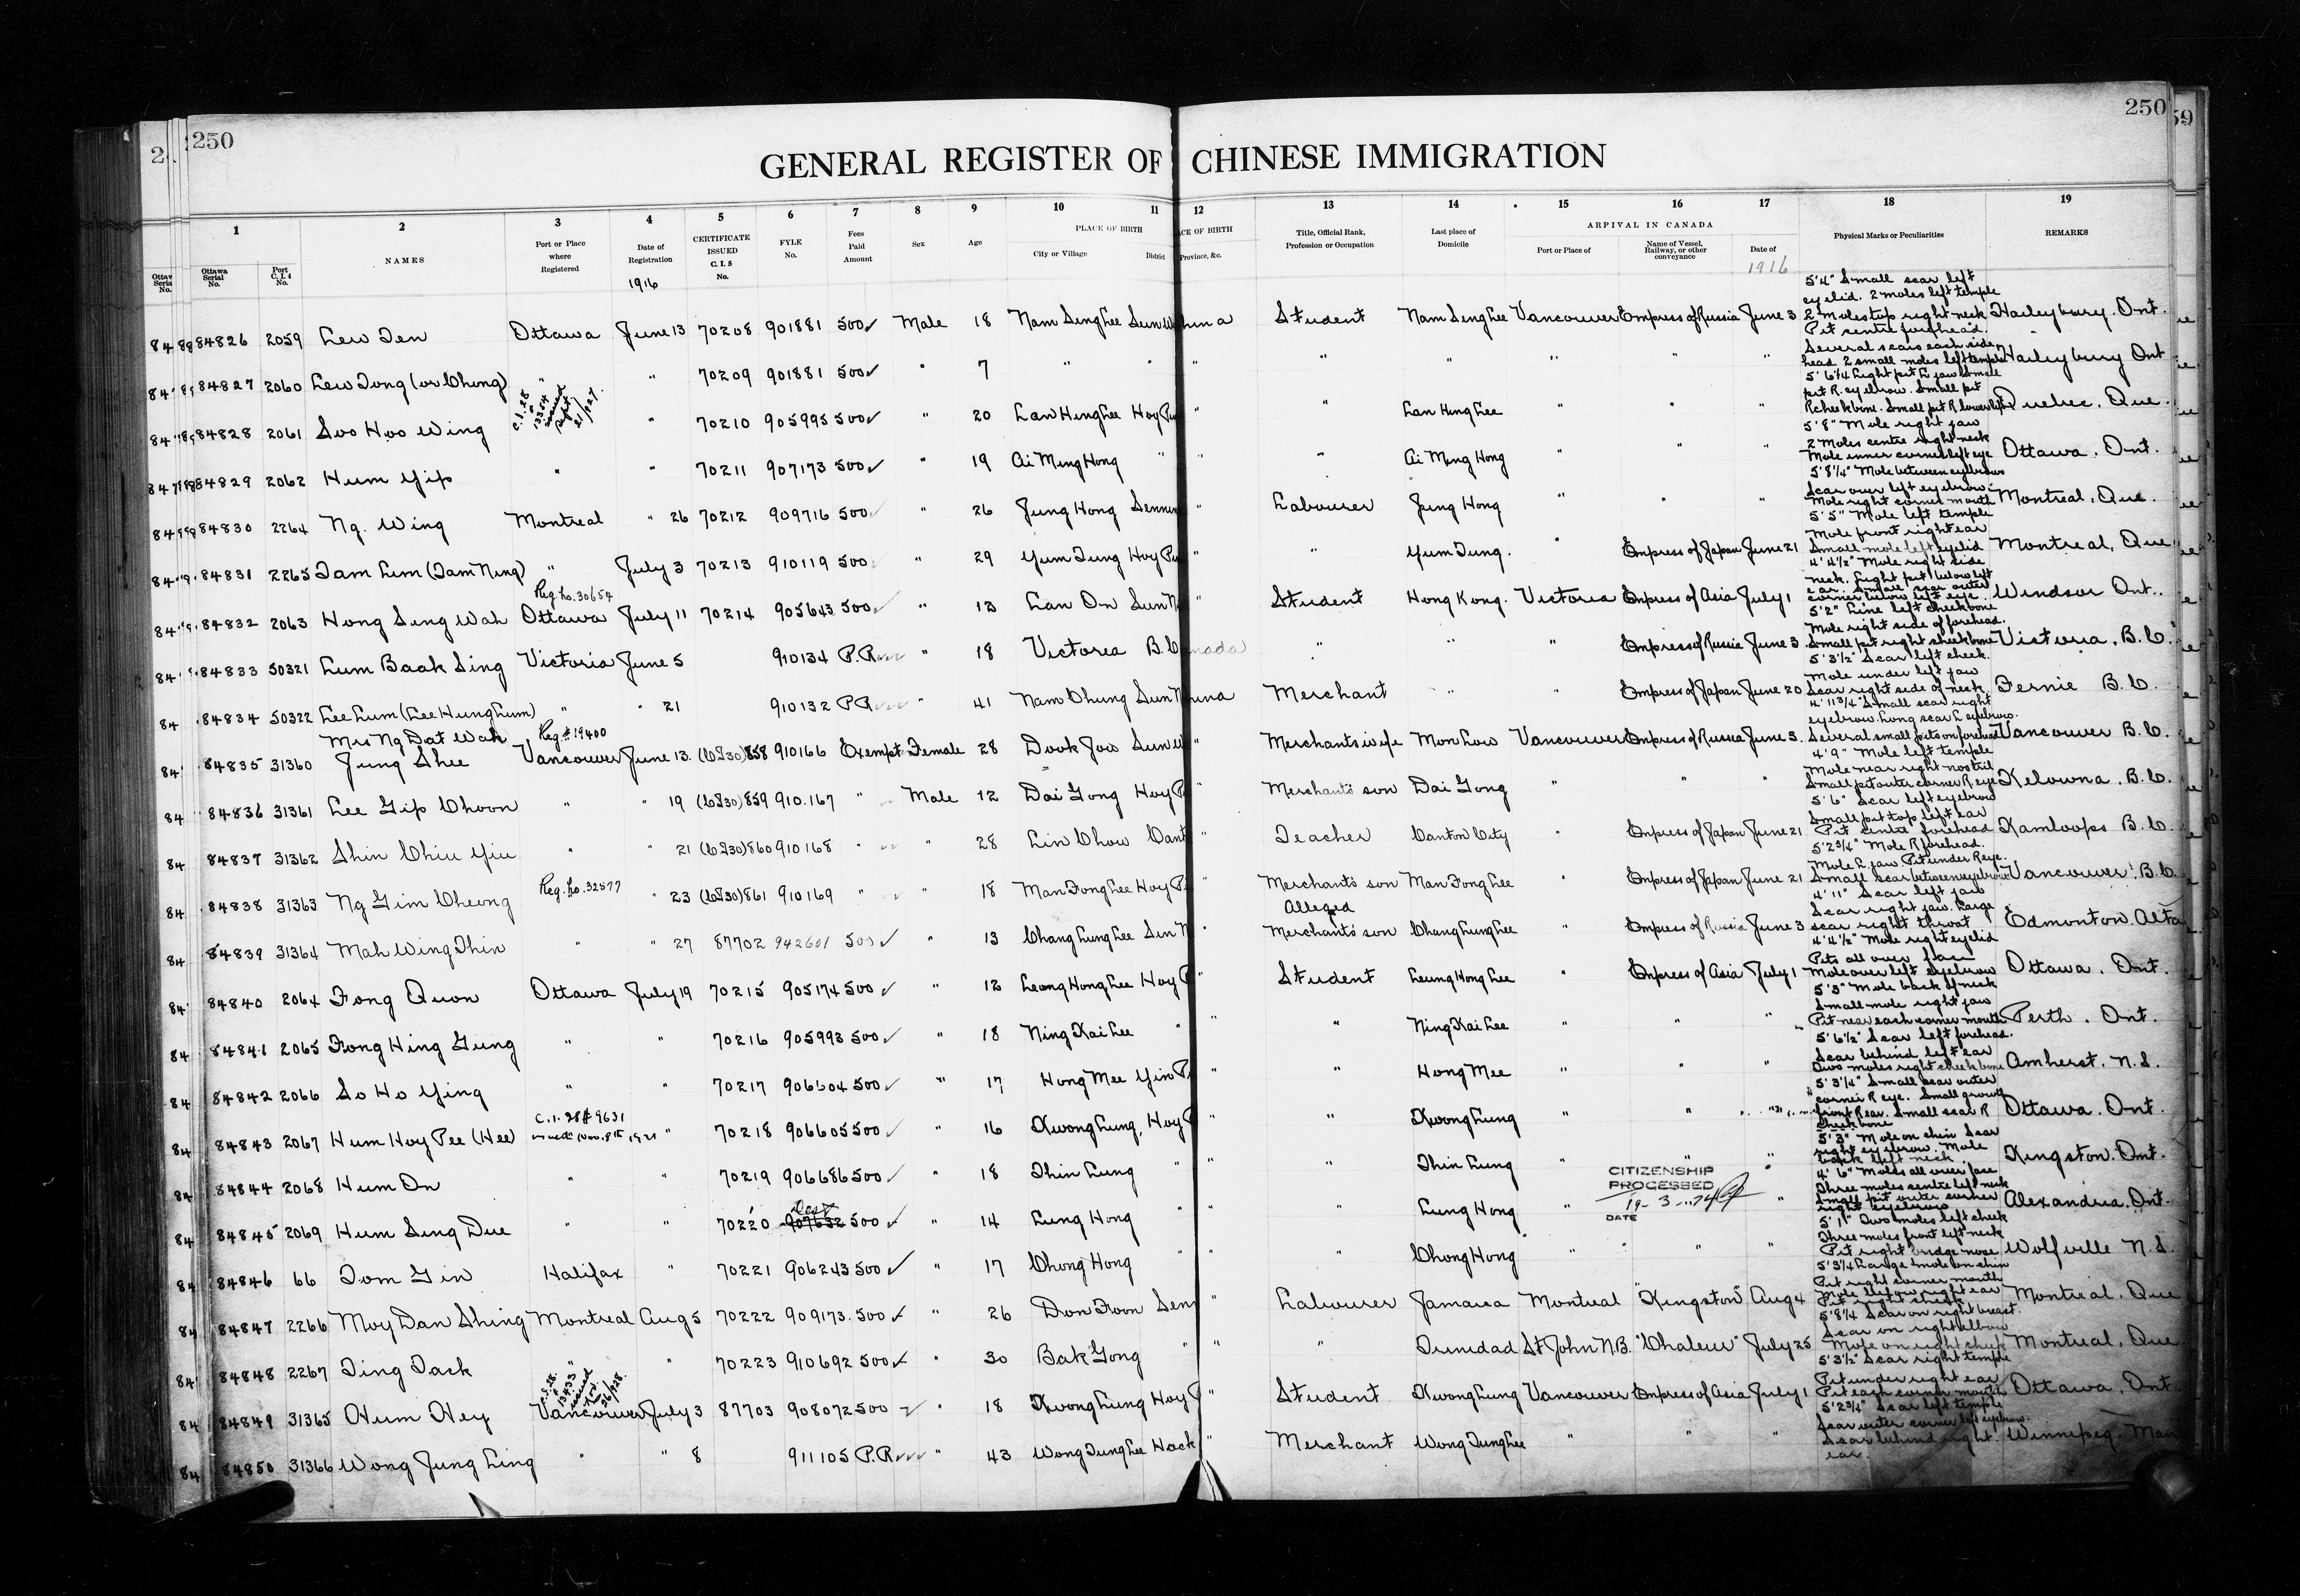 250
250
GENERAL REGISTER OF CHINESE IMMIGRATION
1 2 3 4 5 6 7 8 9 10 11 12 13 14 15 16 17 18 19
Ottawa Serial No. Port C.I.4 No. NAMES Port or Place where Registered Date of Registration CERTIFICATE ISSUED C.I.5 No. FYLE No. Fees Paid Amount Sex Age PLACE OF BIRTH City or Village District Province, &c. Title, Official Rank, Profession or Occupation Last place of Domicile ARRIVAL IN CANADA Port or Place of Name of Vessel, Railway, or other conveyance Date of Physical Marks or Peculiarities REMARKS
1916 1916
84826 2059 Lew Den Ottawa June 13 70208 901881 500 ✓ Male 18 Nam Sing Lee Student Nam Sing Lee Vancouver Empress of Russia June 3 5'4" Small scar left eyelid. 2 moles left temple 2 moles top right neck Pit centre forehead. Haileybury. Ont.
84827 2060 Lew Dong (or Chong) " " 70209 901881 500 ✓ " 7 " " " " " " " " Several scars each side head 2 small moles left temple Haileybury Ont
84828 2061 Soo Hoo Wing C.I.28 13354 issued Sept 21/927. " 70210 905995 500 ✓ " 20 Lan Hing Lee " " Lan Hing Lee " " 5'6¼ Light pit L jaw Small pit R. eyebrow. Small pit R cheekbone. Small pit R lower lip Quebec, Que.
84829 2062 Hum Yip " " 70211 907173 500 ✓ " 19 Ai Ming Hong " " " Ai Ming Hong " " " 5'8" Mole right jaw 2 Moles centre right neck Mole inner corner left eye Ottawa. Ont.
84830 2264 Ng. Wing Montreal " 26 70212 909716 500 " 26 Jung Hong " Labourer Jung Hong " " " 5'8¼" Mole between eyebrows Scar over left eyebrow Mole right corner mouth Montreal, Que.
84831 2265 Dam Lum (Dam Ning) " July 3 70213 910119 500 " 29 Yum Dung " " Yum Dung. " Empress of Japan June 21 5'5" Mole left temple Mole front right ear Small mole left eyelid Montreal, Que
84832 2063 Hong Sing Wah Reg. No. 30654 Ottawa July 11 70214 905643 500 " 12 Lan On Student Hong Kong. Victoria Empress of Asia July 1 4'4½" Mole right side neck. Light pit 1 below left ear. Small scar outer corner below left eye. Windsor Ont.
84833 50321 Lum Baak Sing Victoria June 5 910134 P.R. " 18 Victoria B.C. Canada " " " Empress of Russia June 3 5'2" Line left cheekbone Mole right side of forehead. Small pit right cheekbone Victoria, B.C.
84834 50322 Lee Lum (Lee Hung Lum) " " 21 910132 P.R. " 41 Nam Chung China Merchant " " Empress of Japan June 20 5'3½" Scar left cheek. Mole under left jaw Scar right side of neck Fernie B.C.
84835 31360 Mrs Ng Dat Wah Jung Shee Reg # 19400 Vancouver June 13. (C.I.30) 858 910166 Exempt Female 28 Dook Jow Merchants wife Mon Low Vancouver Empress of Russia June 3. 4'11¾" Small scar right eyebrow. Long scar L eyebrow. Several small pits on forehead Vancouver B.C.
84836 31361 Lee Gip Choon " " 19 (C.I.30) 859 910.167 " Male 12 Dai Gong " Merchants son Dai Gong " " " 4'9" Mole left temple Mole near right nostril Small pit outer corner R. eye Kelowna. B.C.
84837 31362 Shin Chiu Yiu " " 21 (C.I.30) 860 910168 " " 28 Lin Chow " Teacher Canton City " Empress of Japan June 21 5'6" Scar left eyebrow Small pit top left ear Pit centre forehead Kamloops B.C.
84838 31363 Ng Gim Cheong Reg. No. 32577 " 23 (C.I.30) 861 910169 " " 18 Man Fong Lee " Merchants son Man Fong Lee " Empress of Japan June 21 5'2¾" Mole R forehead. Mole L jaw. Pit under R eye. Small scar between eyebrows Vancouver B.C.
84839 31364 Mah Wing Thin " " 27 87702 942601 500 ✓ " 13 Chang Lung Lee " Alleged Merchants son Chang Lung Lee " Empress of Russia June 3 4'11" Scar left jaw Scar right jaw. Large scar right throat Edmonton. Alta
84840 2064 Fong Quon Ottawa July 19 70215 905174 500 ✓ " 12 Leong Hong Lee " Student Leung Hong Lee " Empress of Asia July 1 4'4½" Mole right eyelid Pits all over face Mole over left eyebrow Ottawa. Ont.
84841 2065 Fong Hing Gung " " 70216 905993 500 ✓ " 18 Ning Kai Lee " " " Ning Kai Lee " " " 5'3" Mole back of neck Small mole right jaw Pit near each corner mouth Perth. Ont.
84842 2066 So Ho Ying " " 70217 906604 500 ✓ " 17 Hong Mee " " Hong Mee " " " 5'6½" Scar left forehead. Scar behind left ear Two moles right cheek bone Amherst. N.S.
84843 2067 Hum Hoy Pee (Hee) C.I.28 # 9631 issued Nov. 8th, 1921 " 70218 906605 500 ✓ " 16 Kwong Lung, " " Kwong Lung " " " 5'3¼" Small scar outer corner R eye. Small growth front R ear. Small scar R cheekbone Ottawa. Ont.
84844 2068 Hum On " " 70219 906686 500 ✓ " 18 Thin Lung " " " Thin Lung " " " 5'3" Mole on chin Scar right eyebrow. Mole back left neck Kingston. Ont.
84845 2069 Hum Sing Due " " 70220 907632 500 ✓ " 14 Lung Hong " " " Lung Hong " " 4'6" Moles all over face Three moles centre left neck Small pit outer corner right eyebrow Alexandria. Ont.
CITIZENSHIP PROCESSED
19-3-74
DATE
84846 66 Dom Gin Halifax " 70221 906243 500 ✓ " 17 Chong Hong " " " Chong Hong " " " 5'1" Two moles left cheek Three moles front left neck Pit right bridge nose Wolfville N.S.
84847 2266 Moy Dan Shing Montreal Aug 5 70222 909173. 500 ✓ " 26 Don Foon " Labourer Jamaica Montreal "Kingston" Aug 4 5'3¼ Large mole on chin Pit right corner mouth Mole below right ear Pit right cheek Montreal, Que
84848 2267 Ding Dack " " 70223 910692 500 ✓ " 30 Bak Gong " " " Trinidad St John N.B. "Chaleur" July 25 5'8¼ Scar on right breast. Scar on right elbow Mole on right cheek Montreal, Que
84849 31365 Hum Hey C.I.28. 13433 issued Nov. 26/928. Vancouver July 3 87703 908072 500 ✓ " 18 Kwong Lung " Student Kwong Lung Vancouver Empress of Asia July 1 5'3½" Scar right temple Pit under right ear Pit each corner mouth Ottawa. Ont
84850 31366 Wong Jung Ling " " 8 911105 P.R. " 43 Wong Dung Lee " Merchant Wong Dung Lee " " " 5'2¾" Scar left temple Scar outer corner left eyebrow. Scar behind right ear. Winnipeg. Man